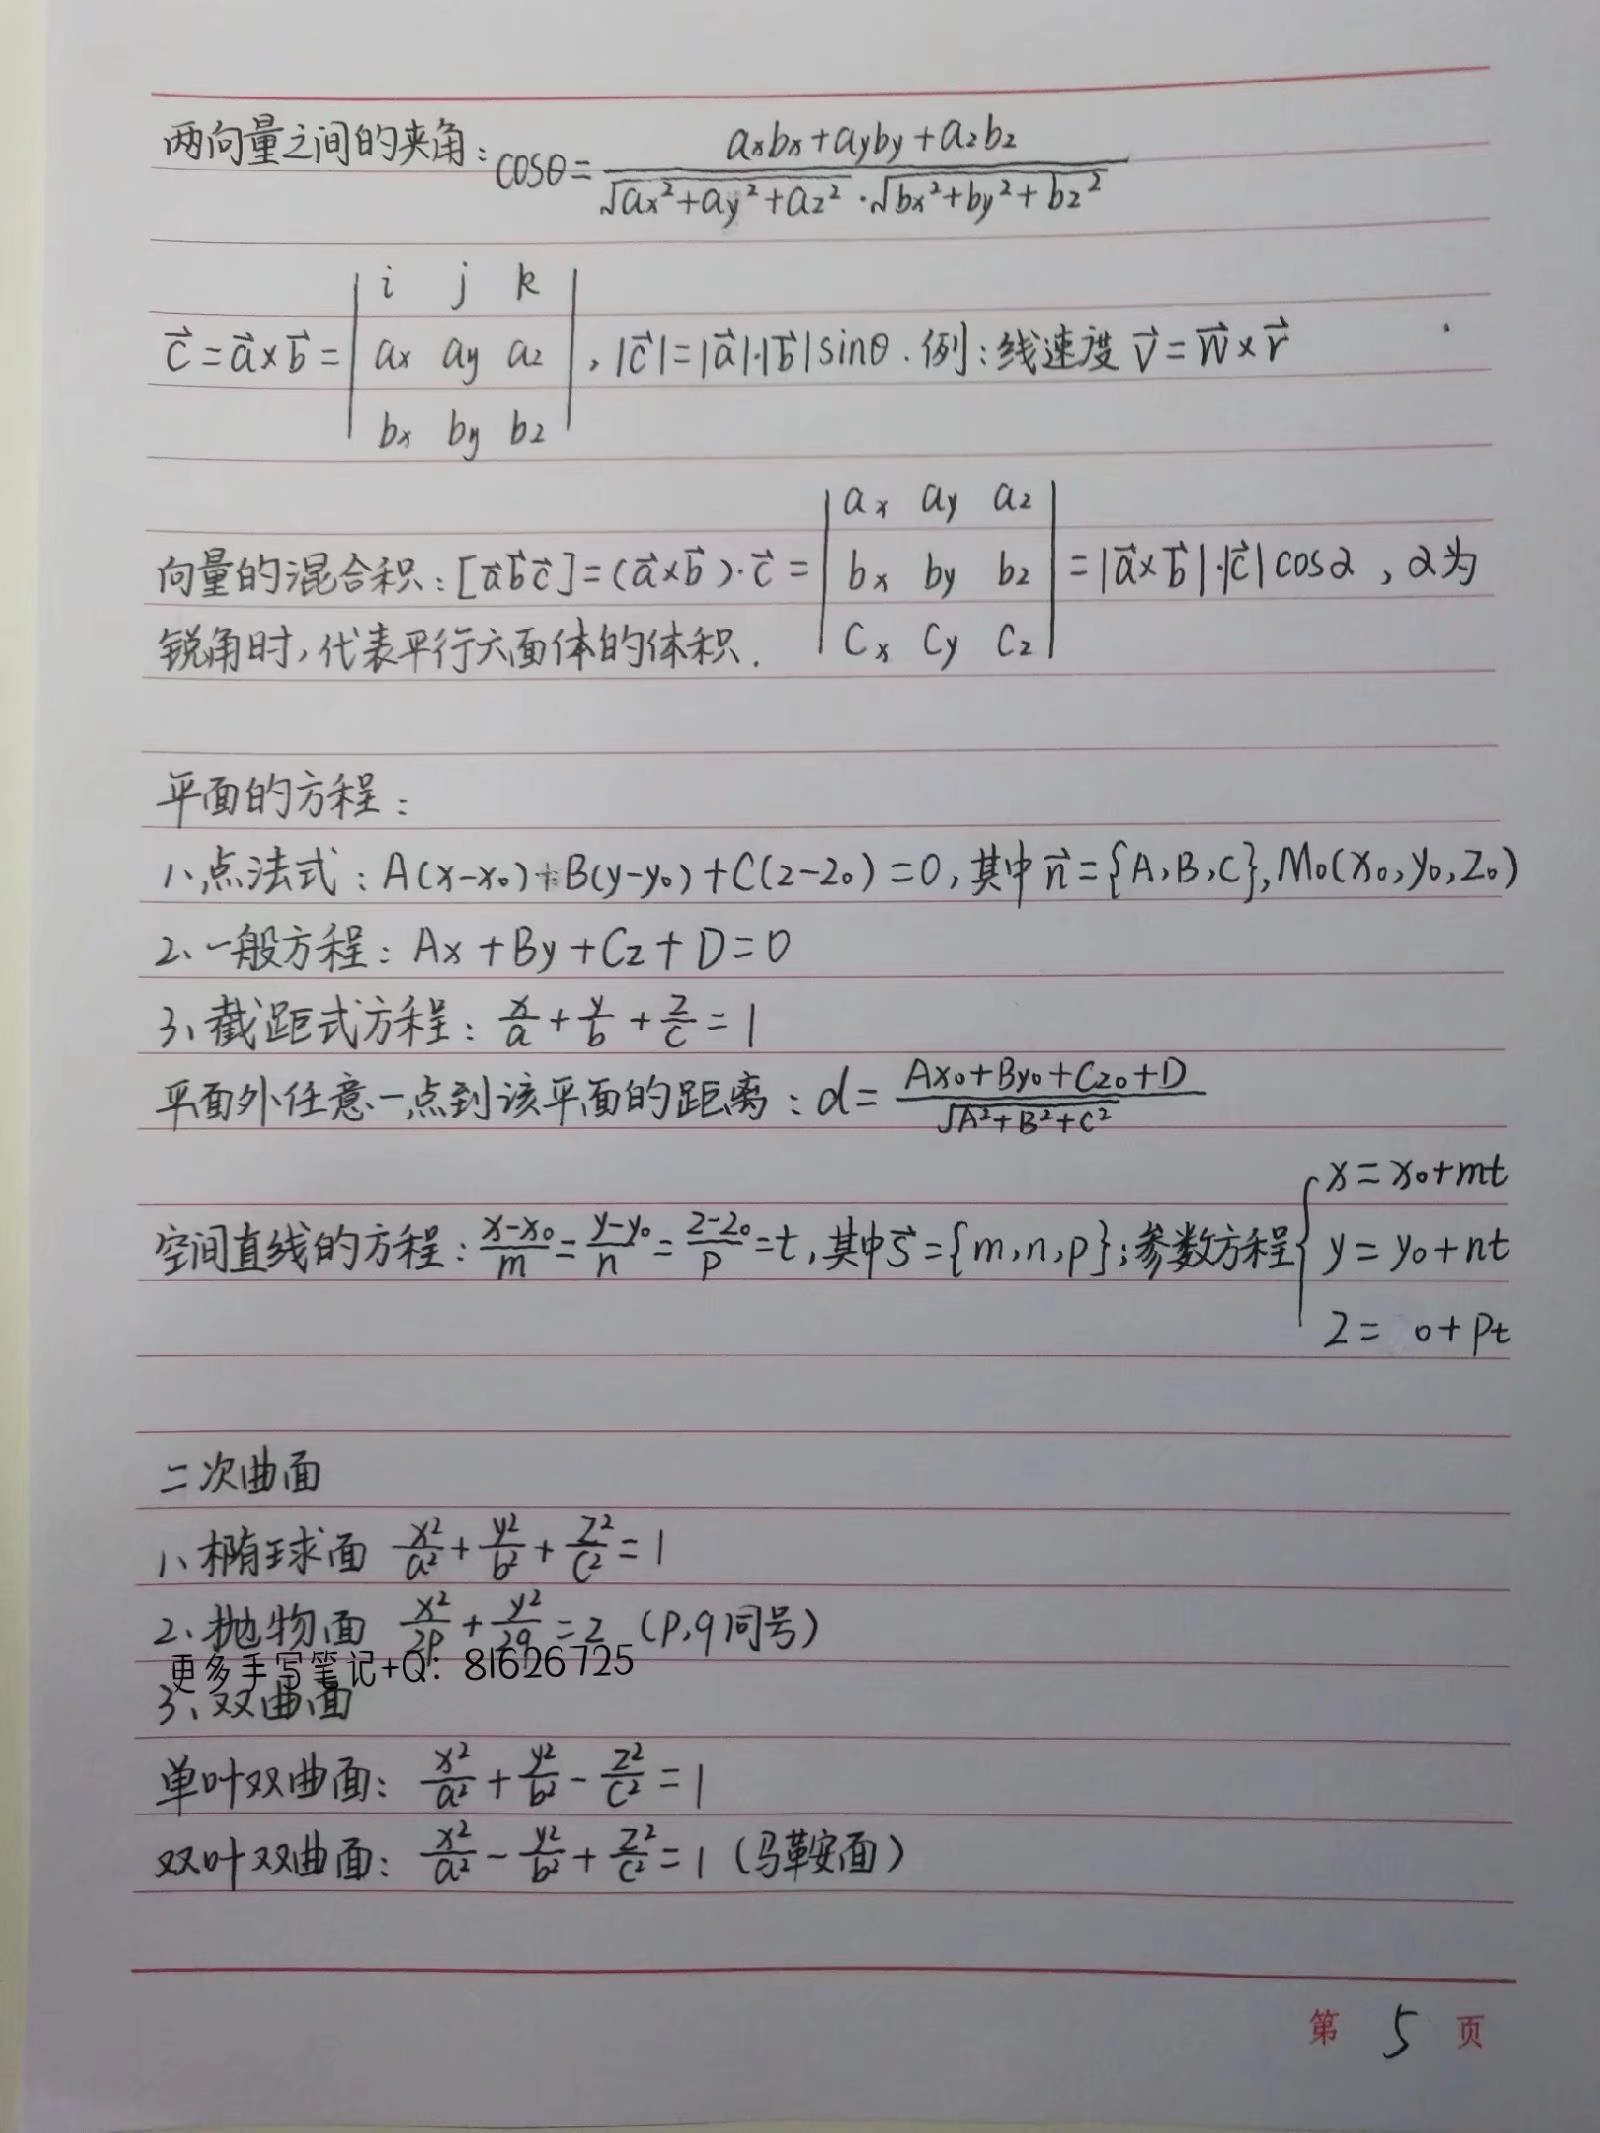 两向量之间的夹角: cosθ = (axbx+ayby+azbz) / (√(ax²+ay²+az²)·√(bx²+by²+bz²))
i j k
c⃗ = a⃗×b⃗ = | ax ay az | , |c⃗|=|a⃗|·|b⃗|sinθ. 例:线速度 v⃗ = w⃗×r⃗
bx by bz
ax ay az
向量的混合积:[a⃗b⃗c⃗]=(a⃗×b⃗)·c⃗ = | bx by bz | = |a⃗×b⃗|·|c⃗|cosα ,α为
锐角时,代表平行六面体的体积. cx cy cz
平面的方程:
1、点法式:A(x-x₀)+B(y-y₀)+C(z-z₀)=0,其中 n⃗={A,B,C},M₀(x₀,y₀,z₀)
2、一般方程:Ax+By+Cz+D=0
3、截距式方程:x/a + y/b + z/c = 1
平面外任意一点到该平面的距离:d = (Ax₀+By₀+Cz₀+D) / √(A²+B²+C²)
x = x₀+mt
空间直线的方程:(x-x₀)/m = (y-y₀)/n = (z-z₀)/p = t,其中s⃗={m,n,p};参数方程{ y = y₀+nt
z = ₀+pt
二次曲面
1、椭球面 x²/a² + y²/b² + z²/c² = 1
2、抛物面 x²/2p + y²/2q = z (p,q同号)
更多手写笔记+Q: 81626725
3、双曲面
单叶双曲面: x²/a² + y²/b² - z²/c² = 1
双叶双曲面: x²/a² - y²/b² + z²/c² = 1 (马鞍面)
第 5 页